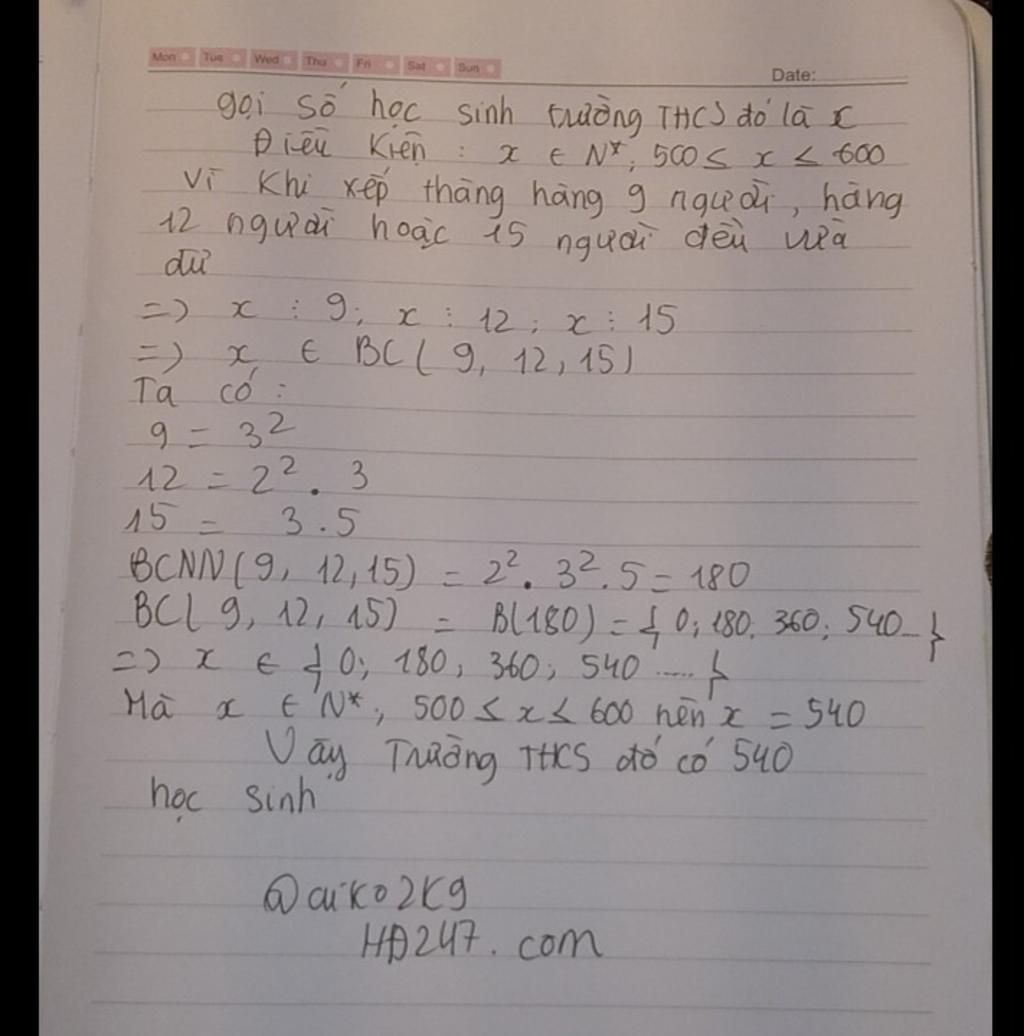 Mon Tue Wed Thu Fri Sat Sun
Date:
gọi số học sinh trường THCS đó là x
Điều Kiện : x ∈ N*, 500 ≤ x ≤ 600
Vì Khi xếp thàng hàng 9 người, hàng
12 người hoặc 15 người đều vừa
đủ
=> x ⋮ 9; x ⋮ 12; x ⋮ 15
=> x ∈ BC( 9, 12, 15)
Ta có :
9 = 3²
12 = 2² . 3
15 = 3 . 5
BCNN(9, 12, 15) = 2² . 3² . 5 = 180
BC( 9, 12, 15) = B(180) = { 0; 180; 360; 540... }
=> x ∈ { 0; 180; 360; 540 .... }
Mà x ∈ N*; 500 ≤ x ≤ 600 nên x = 540
Vậy Trường THCS đó có 540
học sinh
@aiko2K9
HĐ247. com